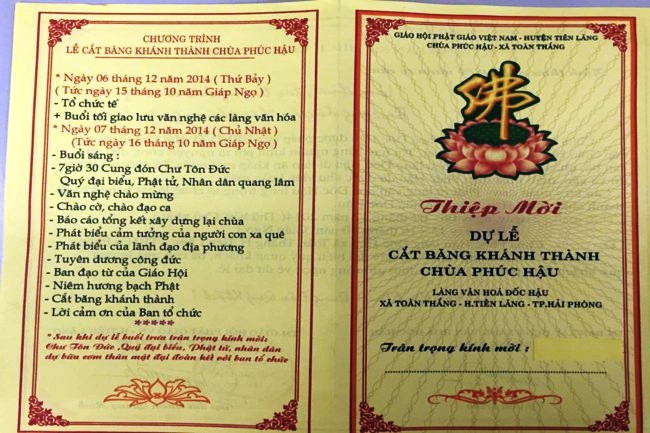 CHƯƠNG TRÌNH
LỄ CẮT BĂNG KHÁNH THÀNH CHÙA PHÚC HẬU
* Ngày 06 tháng 12 năm 2014 ( Thứ Bảy )
( Tức ngày 15 tháng 10 năm Giáp Ngọ )
- Tổ chức tế
+ Buổi tối giao lưu văn nghệ các làng văn hóa
* Ngày 07 tháng 12 năm 2014 ( Chủ Nhật )
( Tức ngày 16 tháng 10 năm Giáp Ngọ )
- Buổi sáng :
- 7giờ 30 Cung đón Chư Tôn Đức
Quý đại biểu, Phật tử, Nhân dân quang lâm
- Văn nghệ chào mừng
- Chào cờ, chào đạo ca
- Báo cáo tổng kết xây dựng lại chùa
- Phát biểu cảm tưởng của người con xa quê
- Phát biểu của lãnh đạo địa phương
- Tuyên dương công đức
- Ban đạo từ của Giáo Hội
- Niêm hương bạch Phật
- Cắt băng khánh thành
- Lời cảm ơn của Ban tổ chức
*****
* Sau khi dự lễ buổi trưa trân trọng kính mời:
Chư Tôn Đức, Quý đại biểu, Phật tử, nhân dân
dự bữa cơm thân mật đại đoàn kết với ban tổ chức
GIÁO HỘI PHẬT GIÁO VIỆT NAM - HUYỆN TIÊN LÃNG
CHÙA PHÚC HẬU - XÃ TOÀN THẮNG
佛
Thiệp Mời
DỰ LỄ
CẮT BĂNG KHÁNH THÀNH
CHÙA PHÚC HẬU
LÀNG VĂN HOÁ ĐỐC HẬU
XÃ TOÀN THẮNG - H.TIÊN LÃNG - TP.HẢI PHÒNG
Trân trọng kính mời :